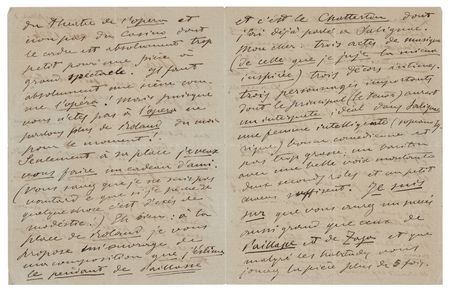 du Théatre de l'opéra et
non pas du Casino dont
le cadre est absolument trop
petit pour une pièce à
grand spectacle. Il faut
absolument une scène com-
me l'opéra! Mais puisque
vous n'êtes pas à l'opéra ne
parlons plus de Roland du moins
pour le moment!
Seulement à sa place je veux
vous faire un cadeau d'ami.
(Vous savez que je ne suis pas
vantard et que si je pèche de
quelque chose c'est d'excès de
modestie!) Eh bien: à la
place de Roland je vous
propose un ouvrage de
ma composition que j'estime
le pendant de Paillasse
et c'est le Chatterton dont
j'ai déjà parlé à Saligna.
Mon cher trois actes de musique
(de celle que je juge la mieux
inspirée) trois décors
trois personnages importants
dont le principal (le ténor) aurait
un interprète idéal dans
une femme intelligente (soprano
) bonne comédienne et
pas trop grosse, un baryton
avec une belle voix
deux seconds rôles et un petit
suffisent. Je suis
sûr que vous aurez un succès
aussi grand que ceux de
Paillasse et de Zaza et que
malgré les habitudes vous
jouerez la pièce plus de 3 fois.